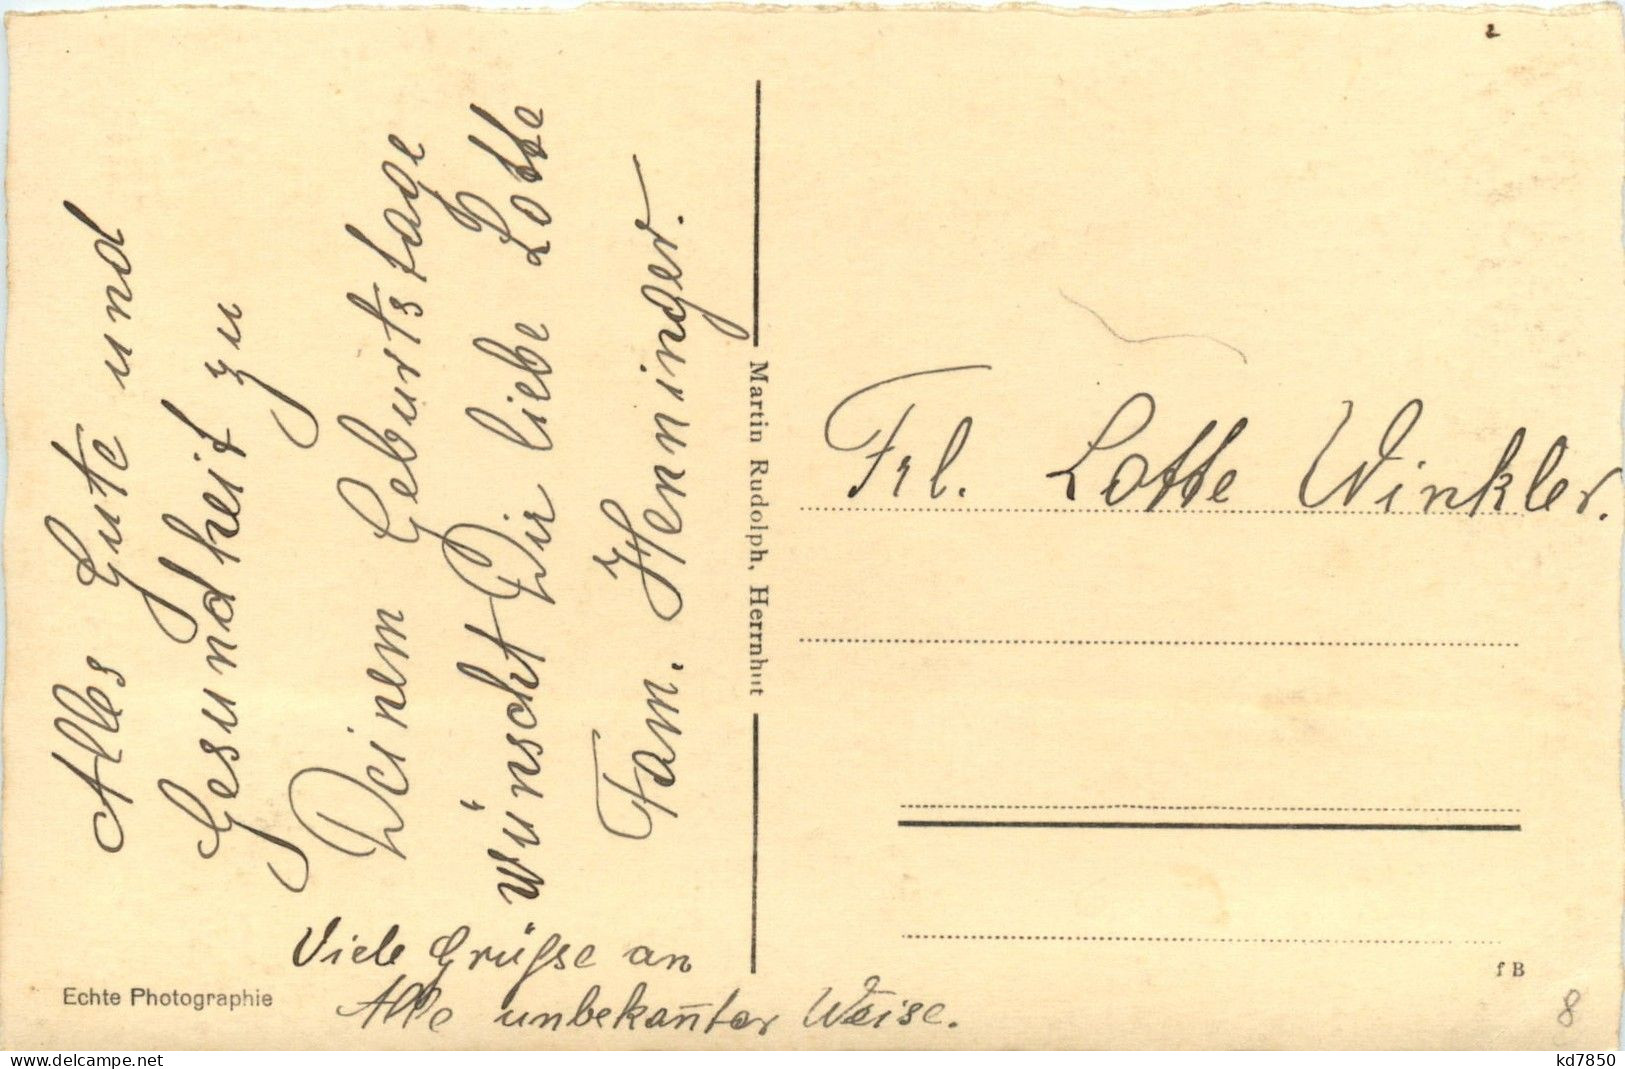 Alles Gute und
Gesundheit zu
Deinem Geburtstage
wünscht Dir liebe Lotte
Fam. Henninger.
Viele Grüßse an
Alle unbekan̄ter Weise.
Echte Photographie
Martin Rudolph, Herrnhut
Frl. Lotte Winkler.
f B
8
delcampe.net
kd7850